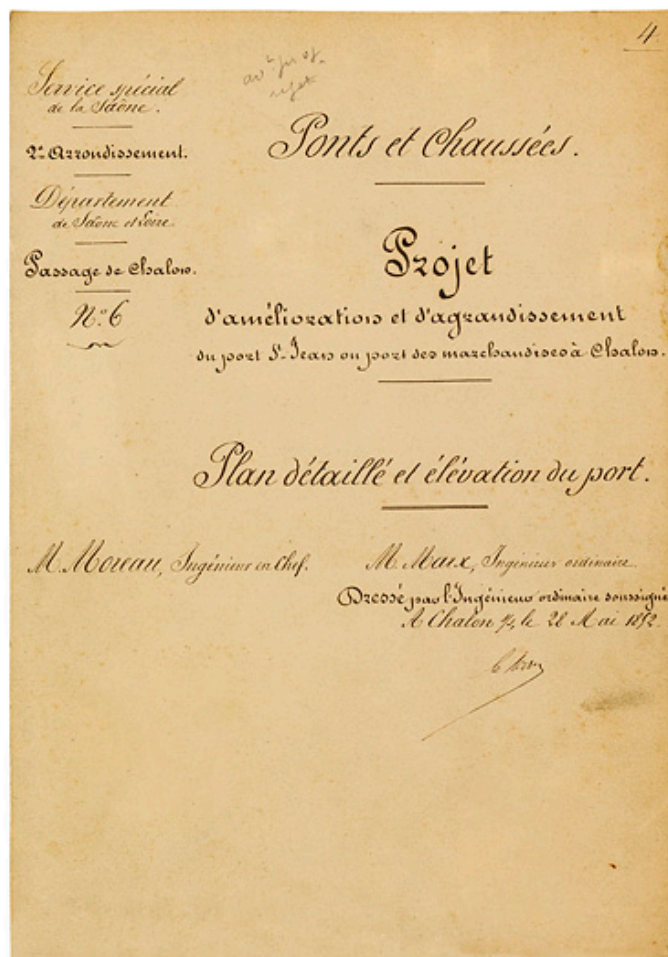 4
Service spécial
de la Saône.
2e Arrondissement.
Département
de Saône et Loire.
Passage de Chalon.
N.o 6
Ponts et Chaussées.
Projet
d'amélioration et d'agrandissement
du port St-Jean ou port des marchandises à Chalon.
Plan détaillé et élévation du port.
M. Moreau, Ingénieur en Chef.
M. Marx, Ingénieur ordinaire.
Dressé par l'Ingénieur ordinaire soussigné
A Chalon s/s, le 28 Mai 1852.